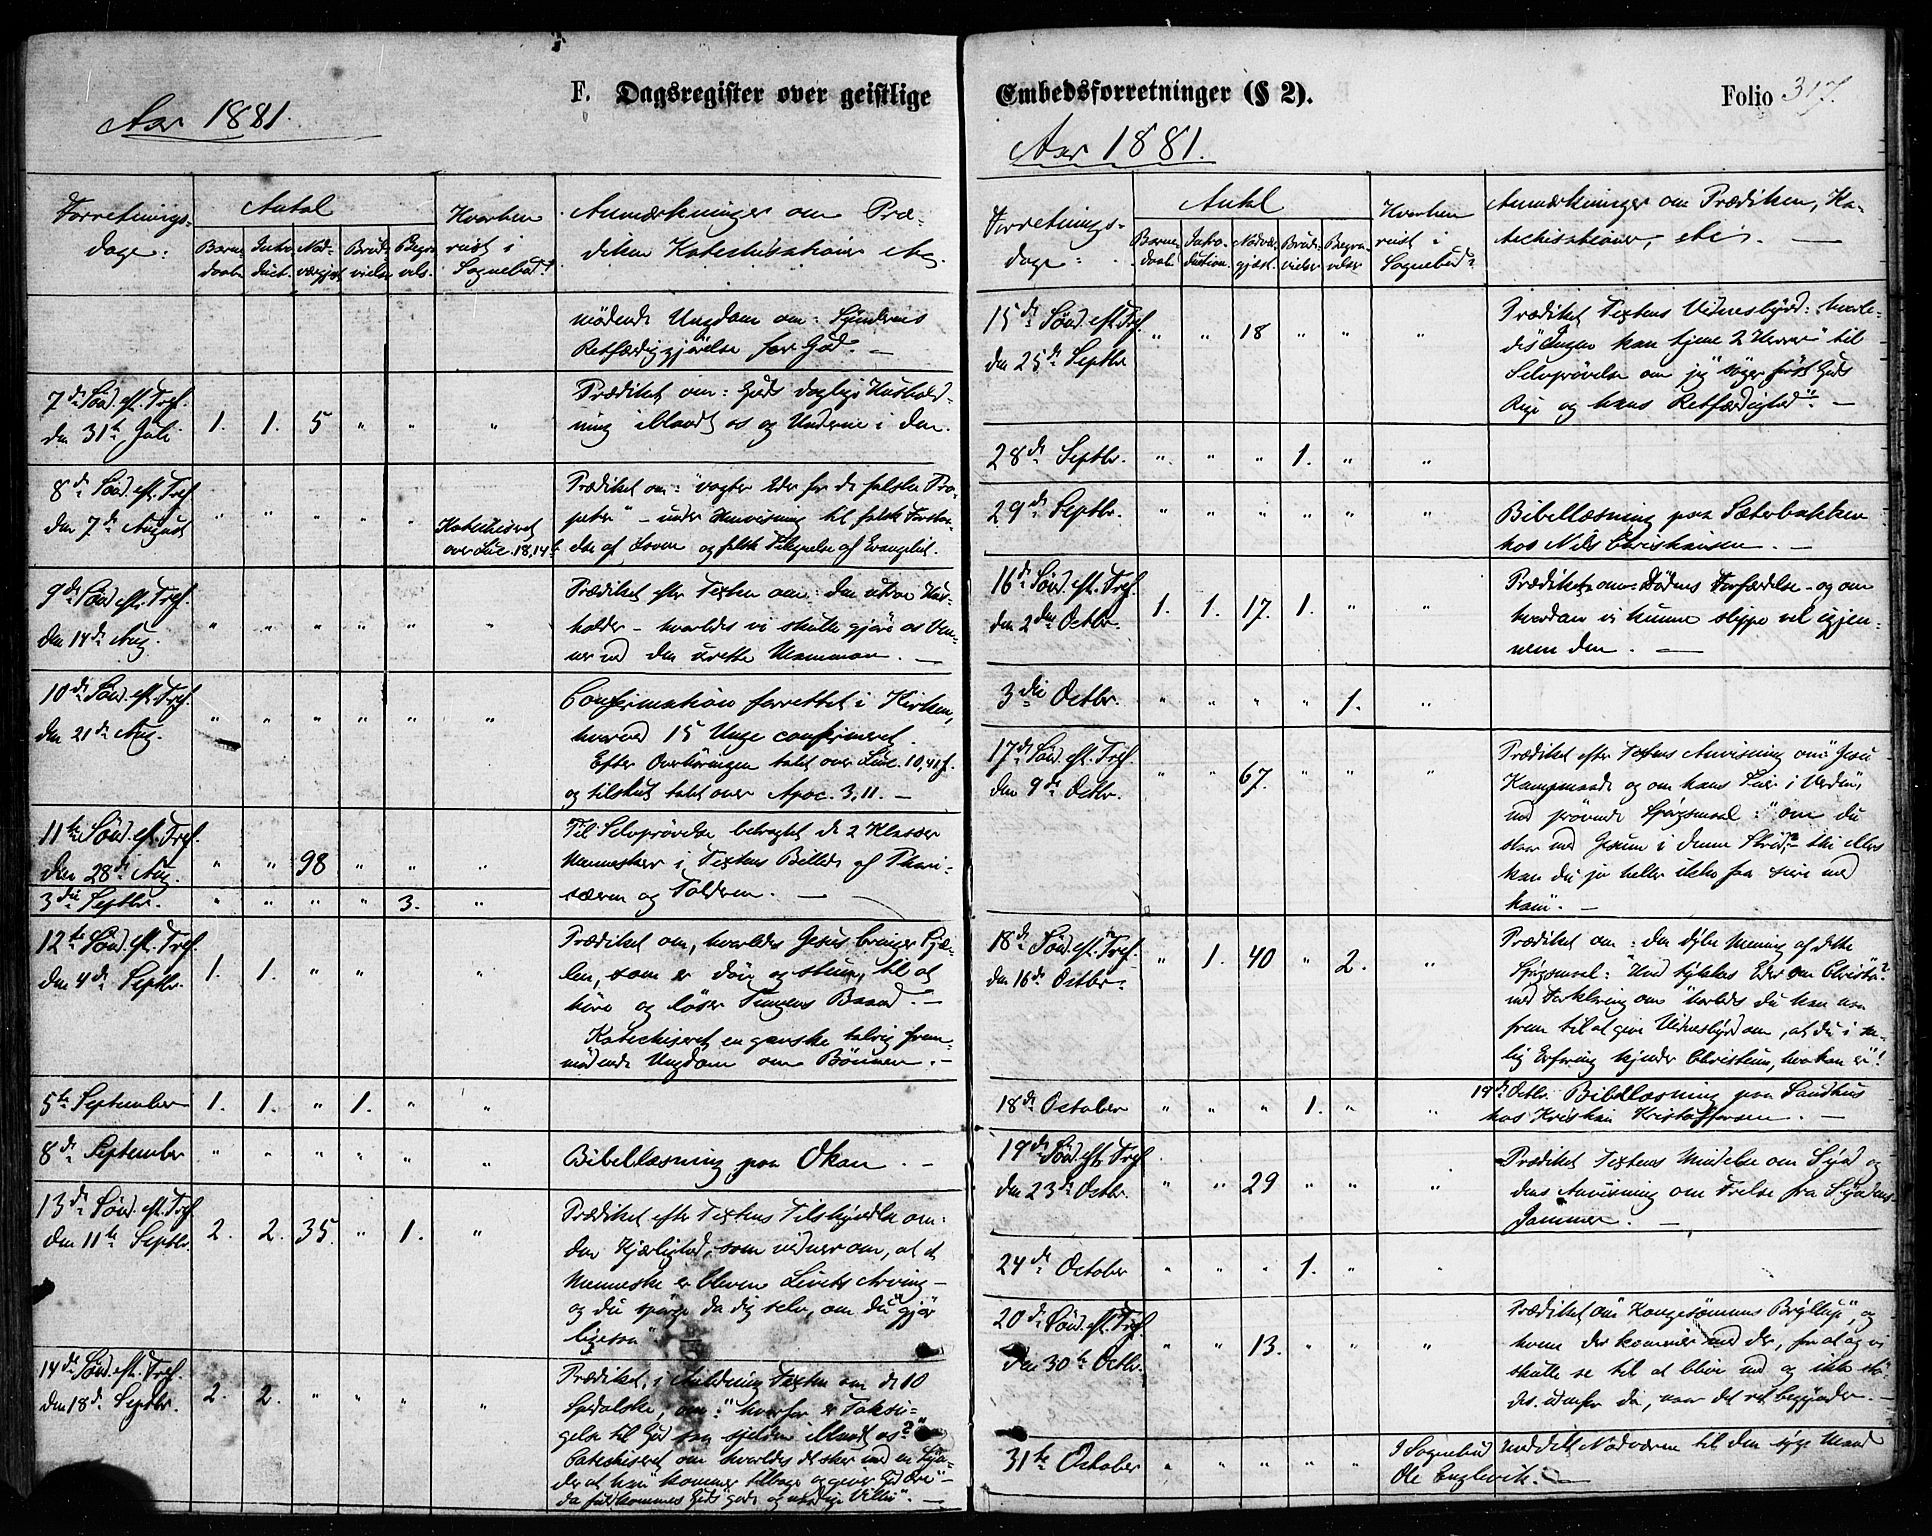 F. Dagsregister over geistlige
Aar 1881.
Forretnings-
dage:
Antal
Barne-
daab
Intro-
duct.
Nad-
værgjest
Brud-
vielse
Begra-
vels.
Hvorhen
reist i
Sognebud?
Anmærkninger om Præ-
diken Katechisationer
mødende Ungdom om: Synderens
Retfærdiggjørelse for Gud. —
7de Sønd. eft. Tref.
den 31te Juli
1. 1. 5 " " "
Prædiket om: Guds daglige Hushold-
ning iblandt os og Underne i den.
8de Sønd. eft. Tref.
den 7de August
" " " " "
Katechiseret
over Luc. 18,14
Prædiket om: "vogter Eder for de falske Pro-
feter" – under Henvisning til falsk
af Loven og falsk Tilegnelse af Evangeliet.
9de Sønd. eft. Tref.
den 14de Aug.
" " " " " "
Prædiket efter Texten om: den utro Hus-
holder – hvorledes vi skulle gjøre os Ven-
ner ved den urette Mammon. —
10de Sønd. eft. Tref.
den 21de Aug.
" " " " " "
Confirmation forrettet i Kirken,
hvorved 15 Unge confirmeret.
Efter Overhøringen talet over Luc. 10,
og tilslut talet over Apoc. 3,11. —
11te Sønd. eft. Tref.
den 28de Aug.
" " 98 " " "
Til Selvprøvelse betragtet de 2 Klasser
Mennesker i Textens Billede af Phari-
3die Septbr.
" " " " 3. "
sæeren og Tolderen. —
12te Sønd. eft. Tref.
den 4de Septbr.
1. 1. " " "
Prædiket om, hvorledes Jesus bringer Sjæ-
len, som er døv og stum, til at
høre og løser Tungens Baand. —
Katechiseret en ganske talrig frem-
mødende Ungdom om Bønnen. —
5te September
1. 1. " 1. " "
8de September
" " " " " "
Bibellæsning paa Økan. —
13de Sønd. eft. Tref.
den 11te Septbr.
2. 2. 35. " 1. "
Prædiket efter Textens Tilskyndelse om:
den Kjærlighed, som vidner om, at et
Menneske er bleven Livets Arving –
og du spørge da dig selv, om du "gjør
ligesaa" —
14de Sønd. eft. Tref.
den 18de Septbr.
2. 2. " " " "
Prædiket, i Anledning Texten om de 10
Spedalske, om: "hvorfor er Taksi-
gelse til Gud saa sjelden iblandt os?"
Catechiseret om hvorledes det sker ved en Syn-
der at han "kommer tilbage og giver Gud Ære" –
da fuldkommes Guds gode og naadige Villie". —
Embedsforretninger (§ 2).
Folio 317.
Aar 1881.
Forretnings-
dage:
Antal
Barne-
daab.
Intro-
duction.
Nadvær-
gjæst.
Brud-
vielser
Begra-
velser
Hvorhen
reist i
Sognebud?
Anmærkninger om Prædiken, Ka-
techisationer, etc. —
15de Sønd. eft. Tref.
den 25de Septbr
" " 18 " " "
Prædiket Textens Vidnesbyrd: hvorle-
des "Ingen kan tjene 2 Herrer" til
Selvprøvelse om jeg "søger først Guds
Rige og hans Retfærdighed". —
28de Septbr.
" " " 1. " "
29de Septbr.
" " " " " "
Bibellæsning paa Sæterbakken
hos Nils Christiansen. —
16de Sønd. eft. Tref.
den 2den Octbr.
1. 1. 17. 1. " "
Prædiket om: Dødens Forfærdelse – og om
hvordan vi kunne slippe vel igjen-
nem den. —
3die Octbr.
" " " " 1. "
17de Sønd. eft. Tref.
den 9de Octbr.
" " 67. " " "
Prædiket efter Textens Anvisning om: "Jesu
Kampmaade og om hans Seier i Verden",
med prøvende Spørgsmaal: "om du
staar med Jesum i denne Strid?" thi ellers
kan du jo heller ikke faa seire med
ham". —
18de Sønd. eft. Tref.
den 16de Octbr.
" 1. 40 " 2. "
Prædiket om: den dybe Mening af dette
Spørgsmaal: "Hvad tykkes Eder om Christo?"
med Forklaring om "hvorledes du kan naa
frem til at give Vidnesbyrd om, at du i sa-
lig Erfaring kjender Christum, hvo han er"!
18de October
" " " 1. " "
19de Octbr. Bibellæsning paa Sandhus
hos Kristian Kristoffersen. —
19de Sønd. eft. Tref.
den 23de Octbr.
" " 29 " " "
Prædiket Textens Mindelse om Synd og
dens Anvisning om Frelse fra Syndens
Jammer. —
24de October
" " " 1. " "
20de Sønd. eft. Tref.
den 30te Octbr.
" " 13. " " "
Prædiket om "Kongesønnens Bryllup", og
hvem der kommer med der, for at og vi
skulle se til at blive med og ikke stø-
des udenfor da, naar det ret begynder. —
31te October
" " " " "
I Sognebud med det Nadværen til den syge Mand
Ole Englevik. —